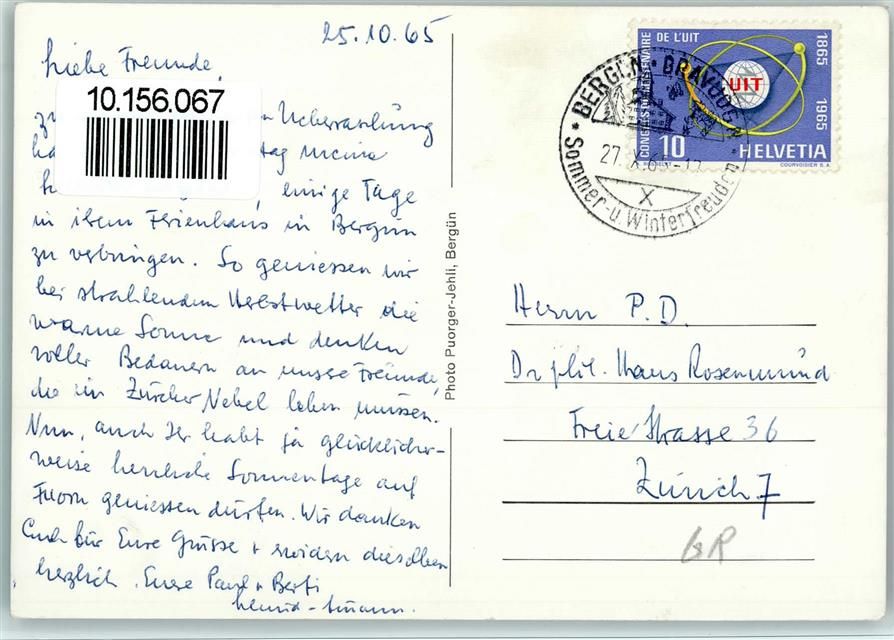 25.10.65
Liebe Freunde,
10.156.067
zu Ueberraschung
tag meine
einige Tage
in ihrem Ferienhaus in Bergün
zu verbringen. So geniessen wir
bei strahlendem Herbstwetter die
warme Sonne und denken
voller Bedauern an unsere Freunde,
die im Zürcher Nebel leben müssen.
Nun, auch Ihr habt ja glücklicher-
weise herrliche Sonnentage auf
Fluorn geniessen dürfen. Wir danken
Euch für Eure Grüsse + erwidern dieselben
herzlich. Eure Paul + Berti
Photo Puorger-Jehli, Bergün
CONGRÈS DU CENTENAIRE DE L'UIT
1865 1965
UIT
10 HELVETIA
COURVOISIER S.A.
* BERGÜN · BRAVUOGN *
27.X.65-17
X
Sommer- u. Winterfreuden
Herrn P.D.
Dr phil. Hans Rosenmund
Freie Strasse 36
Zürich 7
GR